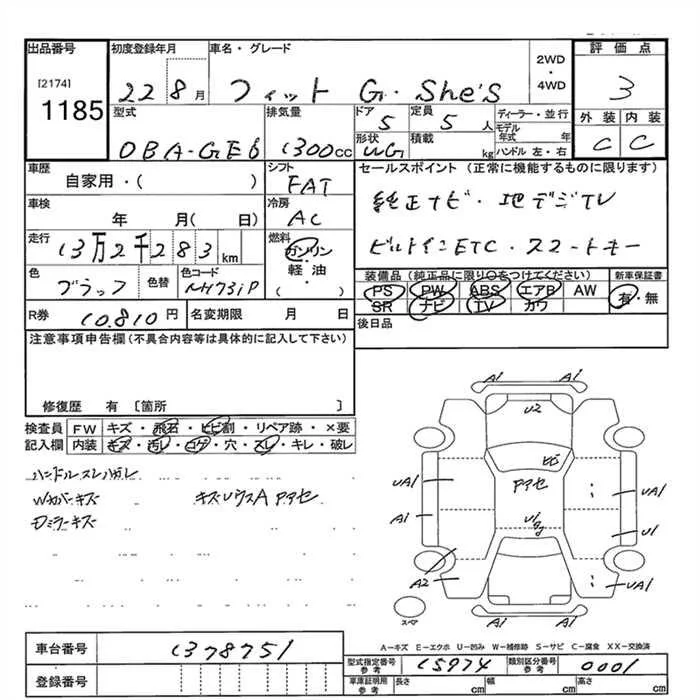 出品番号 初度登録年月 車名・グレード 評価点
[2174]
1185
22 8月 フィット G・She's 2WD・4WD 3
型式 排気量 ドア 定員 ディーラー・並行 外装 内装
DBA-GE6 1300cc 5 5人 モデル年式 年 C C
形状 積載 ハンドル 左・右
WG kg
車歴 シフト セールスポイント(正常に機能するものに限ります)
自家用・( ) FAT
純正ナビ・地デジTV
車検 冷房
年 月(日) AC
ビルトインETC・スマートキー
走行 燃料
13万2千283km ガソリン・軽油・( )
色 色替 色コード 装備品(純正品に限り○をつけてください) 新車保証書
ブラック NH731P PS PW ABS エアB AW 有・無
SR ナビ TV カワ
R券 10.810円 名変期限 月 日 後日品
注意事項申告欄(不具合内容等は具体的に記入して下さい)
修復歴 有 〔箇所 〕
検査員 FW キズ・飛石・ヒビ割・リペア跡・×要
記入欄 内装 キズ・汚レ・コゲ・穴・スレ・キレ・破レ
ハンドルスレハガレ
Wカバーキズ キズUウスA Pアセ
Dミラーキズ
A1 A1
U2
ヒビ
Pアセ
UA1 UA1
A1 U1
A2 UA1
A1 A1
スペア
A-キズ E-エクボ U-凹み W-補修跡 S-サビ C-腐食 XX-交換済
車台番号 1378751
型式指定番号 参考 15974 類別区分番号 参考 0001
登録番号 車庫証明用 参考 長さ cm 幅 cm 高さ cm